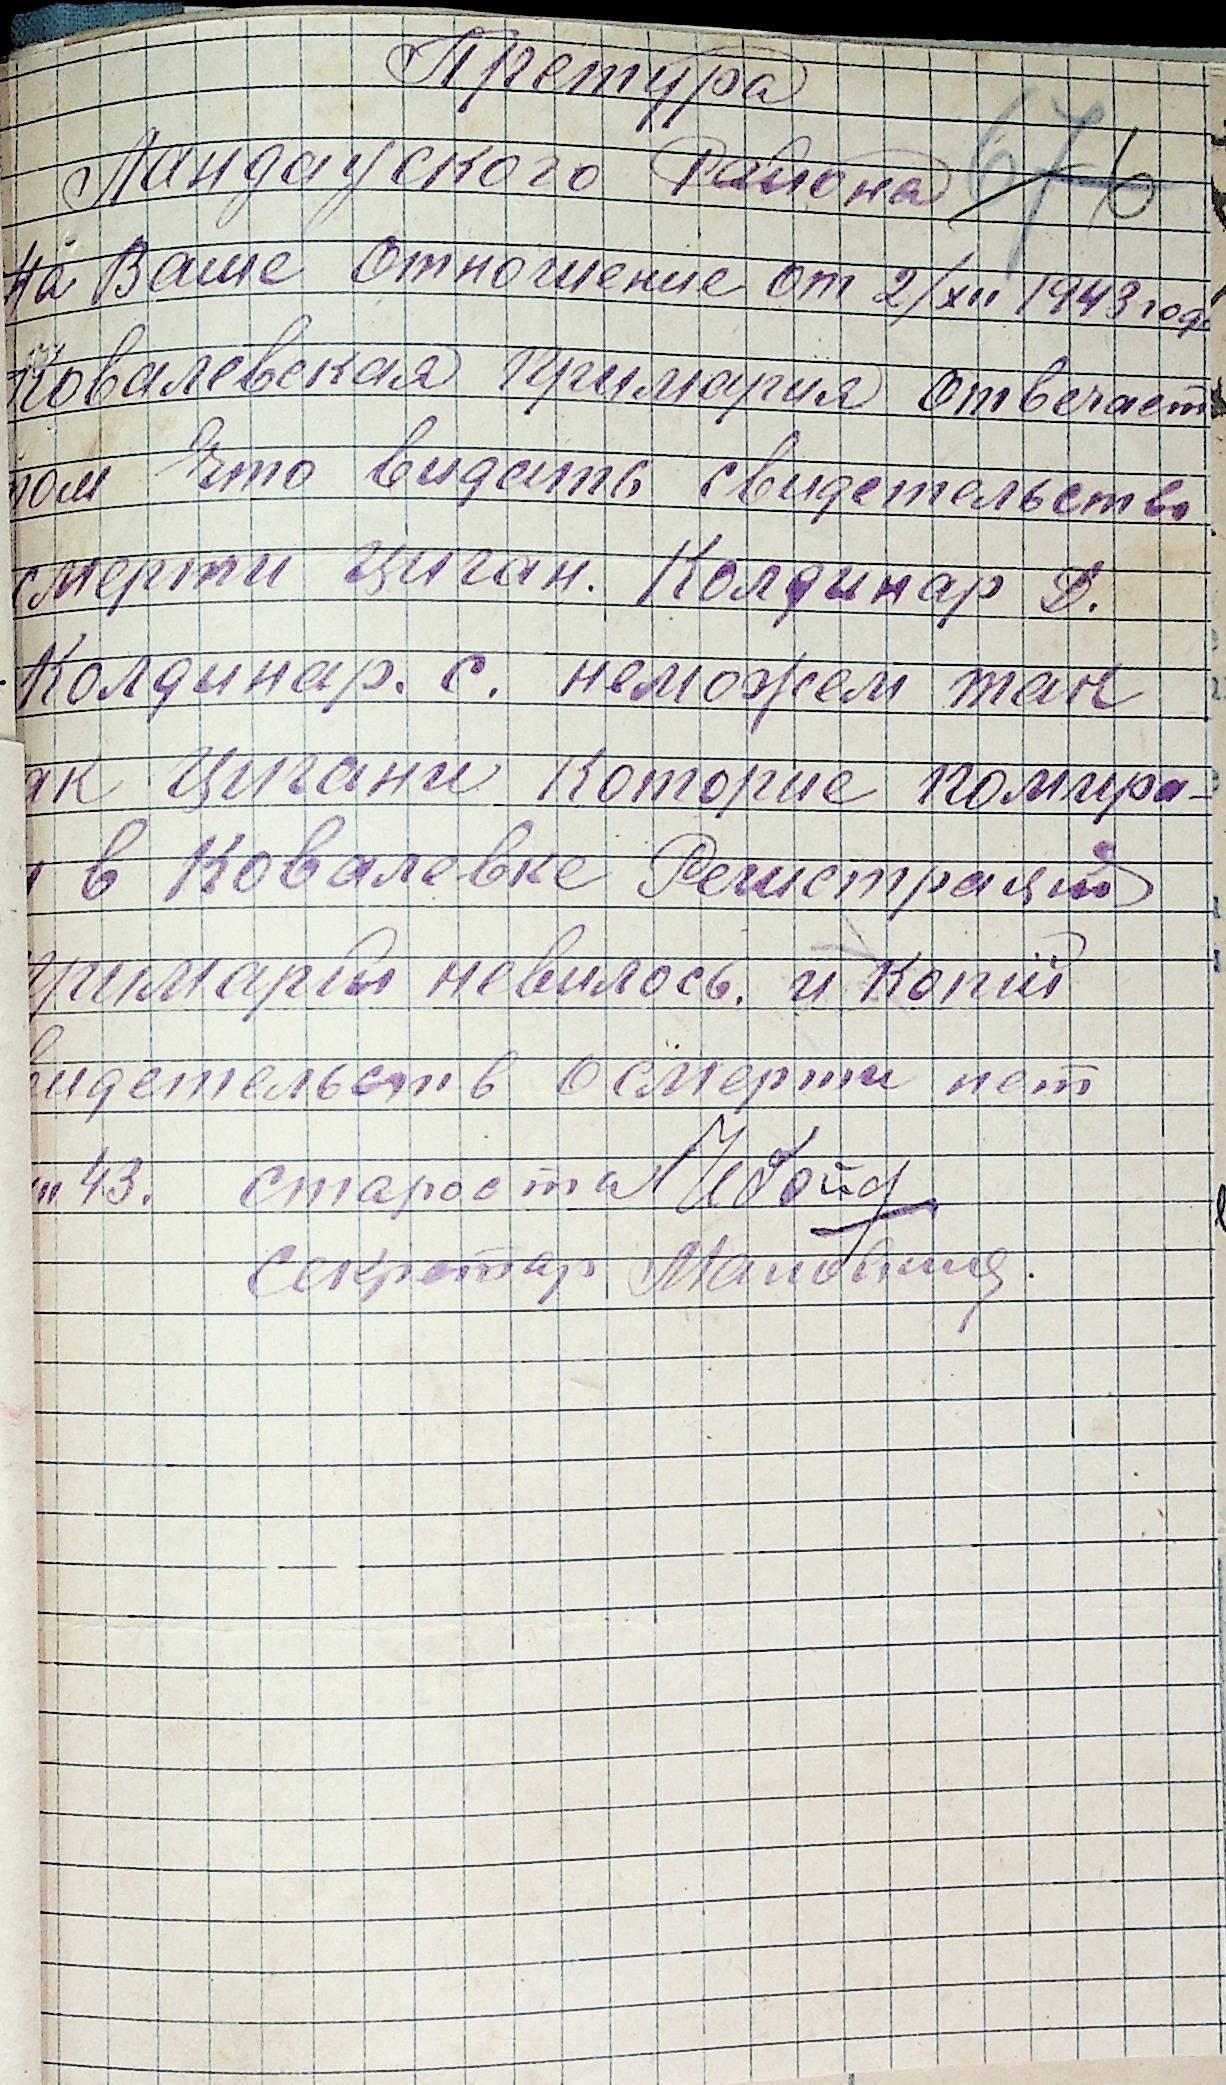 Претура
Ландауского Района 67 6
На Ваше Отношение от 2/XII 1943 года
Ковалевская Примария отвечает
том Что видать свидетельство
смерти Циган. Колдинар Д.
Колдинар. С. неможем так
ак Цигани Которие помира-
и в Ковалевке Регистраций
примарій невилось. и Копій
видетельств осмерти нет
III 43. староста Чебойд
секретар